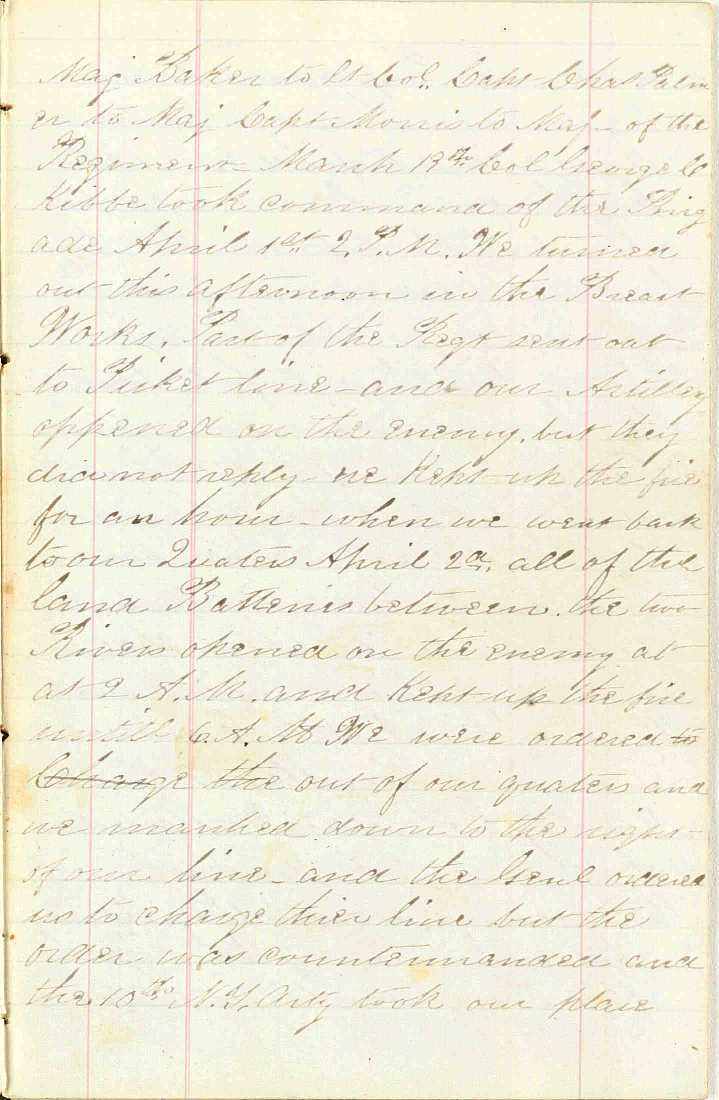 Maj Baker to Lt Col. Capt Chas Palm
er to Maj Capt Morris to Maj - of the
Regiment - March 13th Col George C
Kibbe took command of the Brig
ade April 1st 2, P.M. We turned
out this afternoon in the Breast
Works. Part of the Regt sent out
to Picket line - and our Artillery
oppened on the enemy, but they
did not reply - we Kept up the fire
for an hour - when we went back
to our Quaters April 2d, all of the
land Batteries between the two
Rivers opened on the enemy at
at 2 A.M. and Kept up the fire
untill 6. A. M We were ordered to
Charge the out of our quaters and
we marched down to the right
of our line - and the Genl ordered
us to charge thier line but the
order was countermanded and
the 10th N.Y. Arty took our place